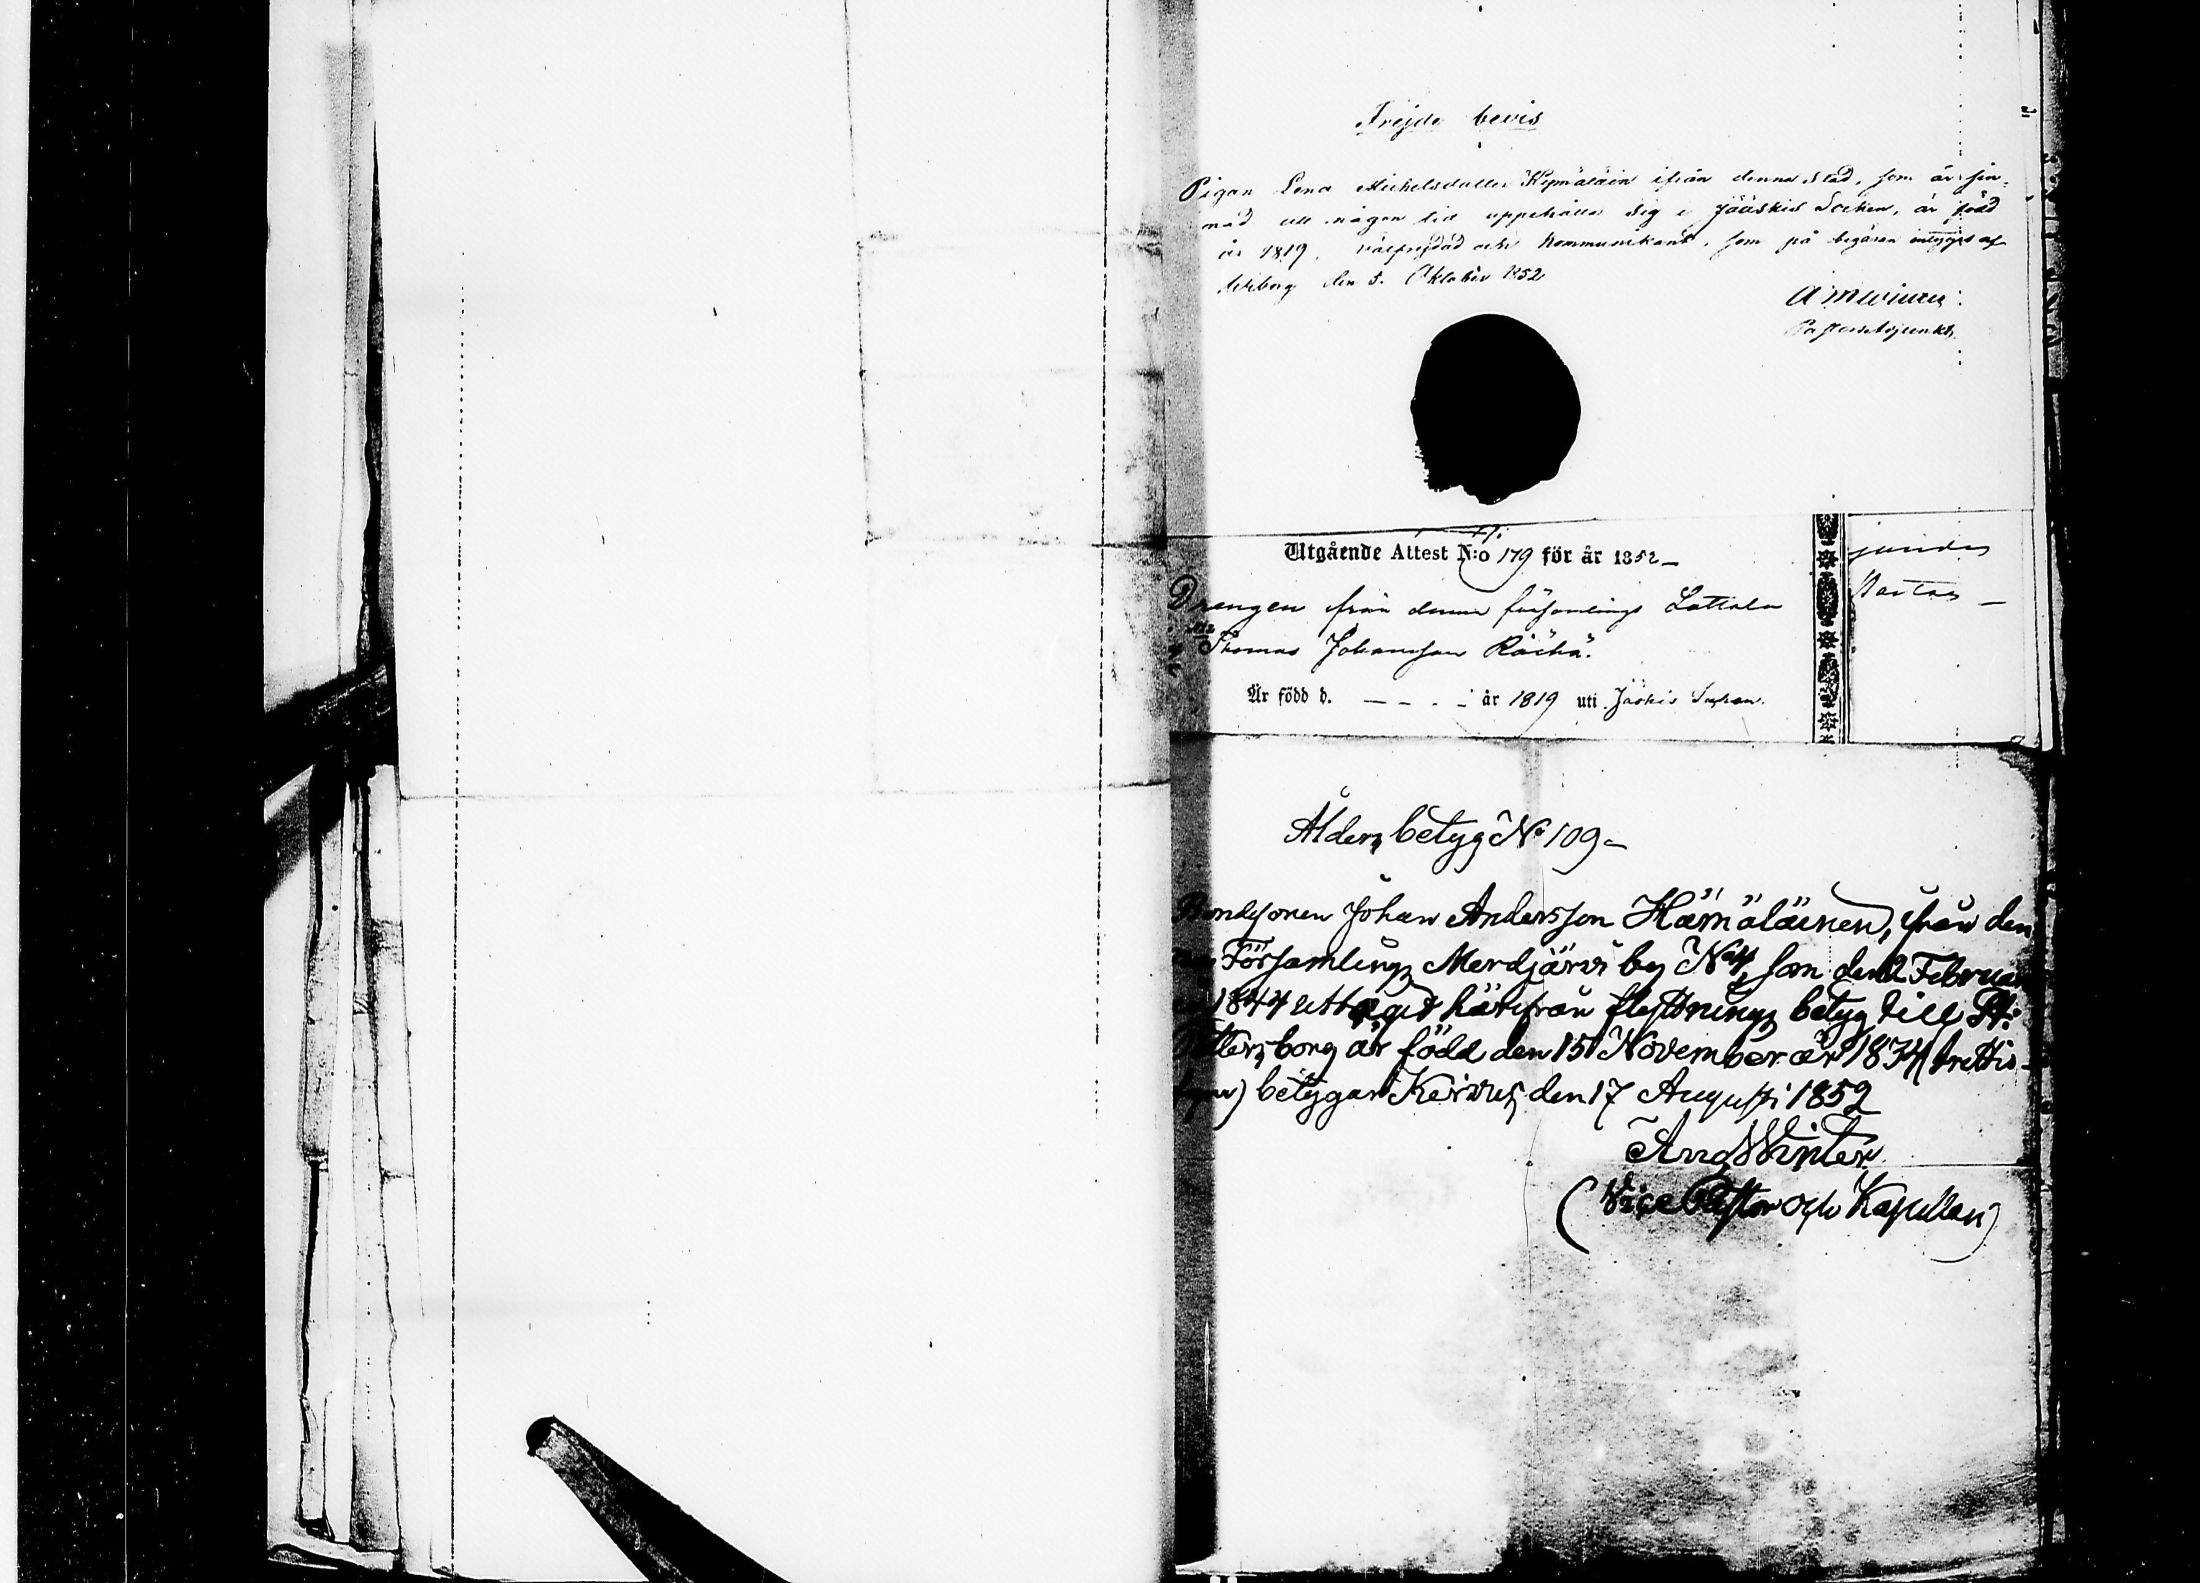 Frejde bevis
Pigan Lena Michelsdotter ifrån denna stad, som är sin-
nad att någon tid uppehålla sig i Jääskis Socken, är född
år 1819, välfrejdad och Kommunikant, som på begäran intygas af
Wiborg den 5. Oktober 1852
Pastorsadjunkt.
47.
Utgående Attest N:o 179 för år 1852 —
Drengen från denne församlings Lottola
N:2 Thomas Johansson Räihä.
Är född d. — — . — år 1819 uti Jäskis Soken.
Ålders betyg No 109 —
Bondesonen Johan Andersson Hämäläinen, ifrån den
Församlings Merdjärvi by No 4, som den 2 Februar
1844 uttagit härifrån flyttnings betyg till St:
Pettersborg är född den 15 November år 1834 trettio-
fyra) betygar Kirvus den 17 Augusti 1852
Aug Winter
(Vice Pastor och Kapellan)